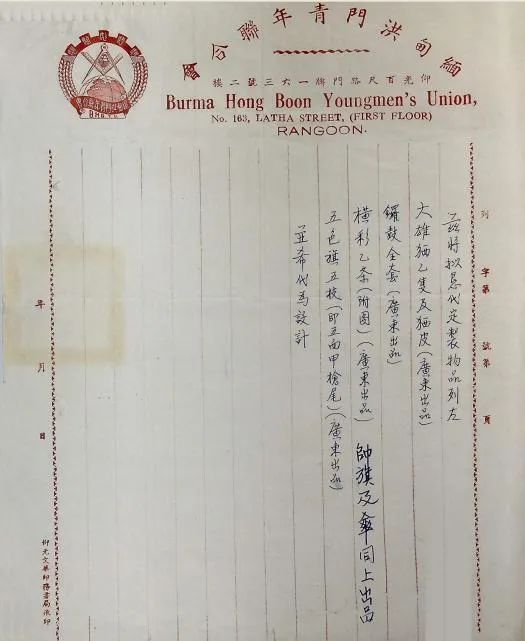 緬甸洪門青年聯合會
仰光百尺路門牌一六三號二樓
Burma Hong Boon Youngmen's Union,
No. 163, LATHA STREET, (FIRST FLOOR)
RANGOON.
列 字第 號第 頁
茲將拟恳代定製物品列左
大雄狮乙隻及狮皮(廣東出品)
鑼鼓全套(廣東出品)
橫彩乙条(附图)(廣東出品) 帥旗及傘同上出品
五色旗五枝(即五面甲槍尾)(廣東出品)
並希代为設計
年 月 日
仰光文華印務書局承印